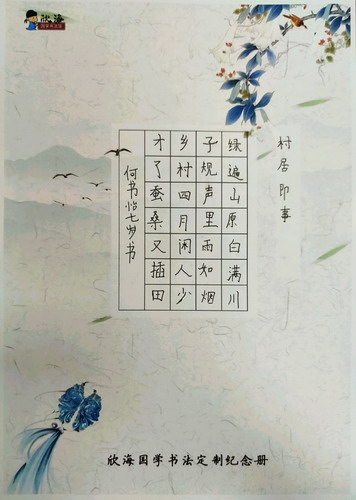 欣海
国学书法馆
村居即事
绿遍山原白满川
子规声里雨如烟
乡村四月闲人少
才了蚕桑又插田
何书怡七岁书
欣海国学书法定制纪念册